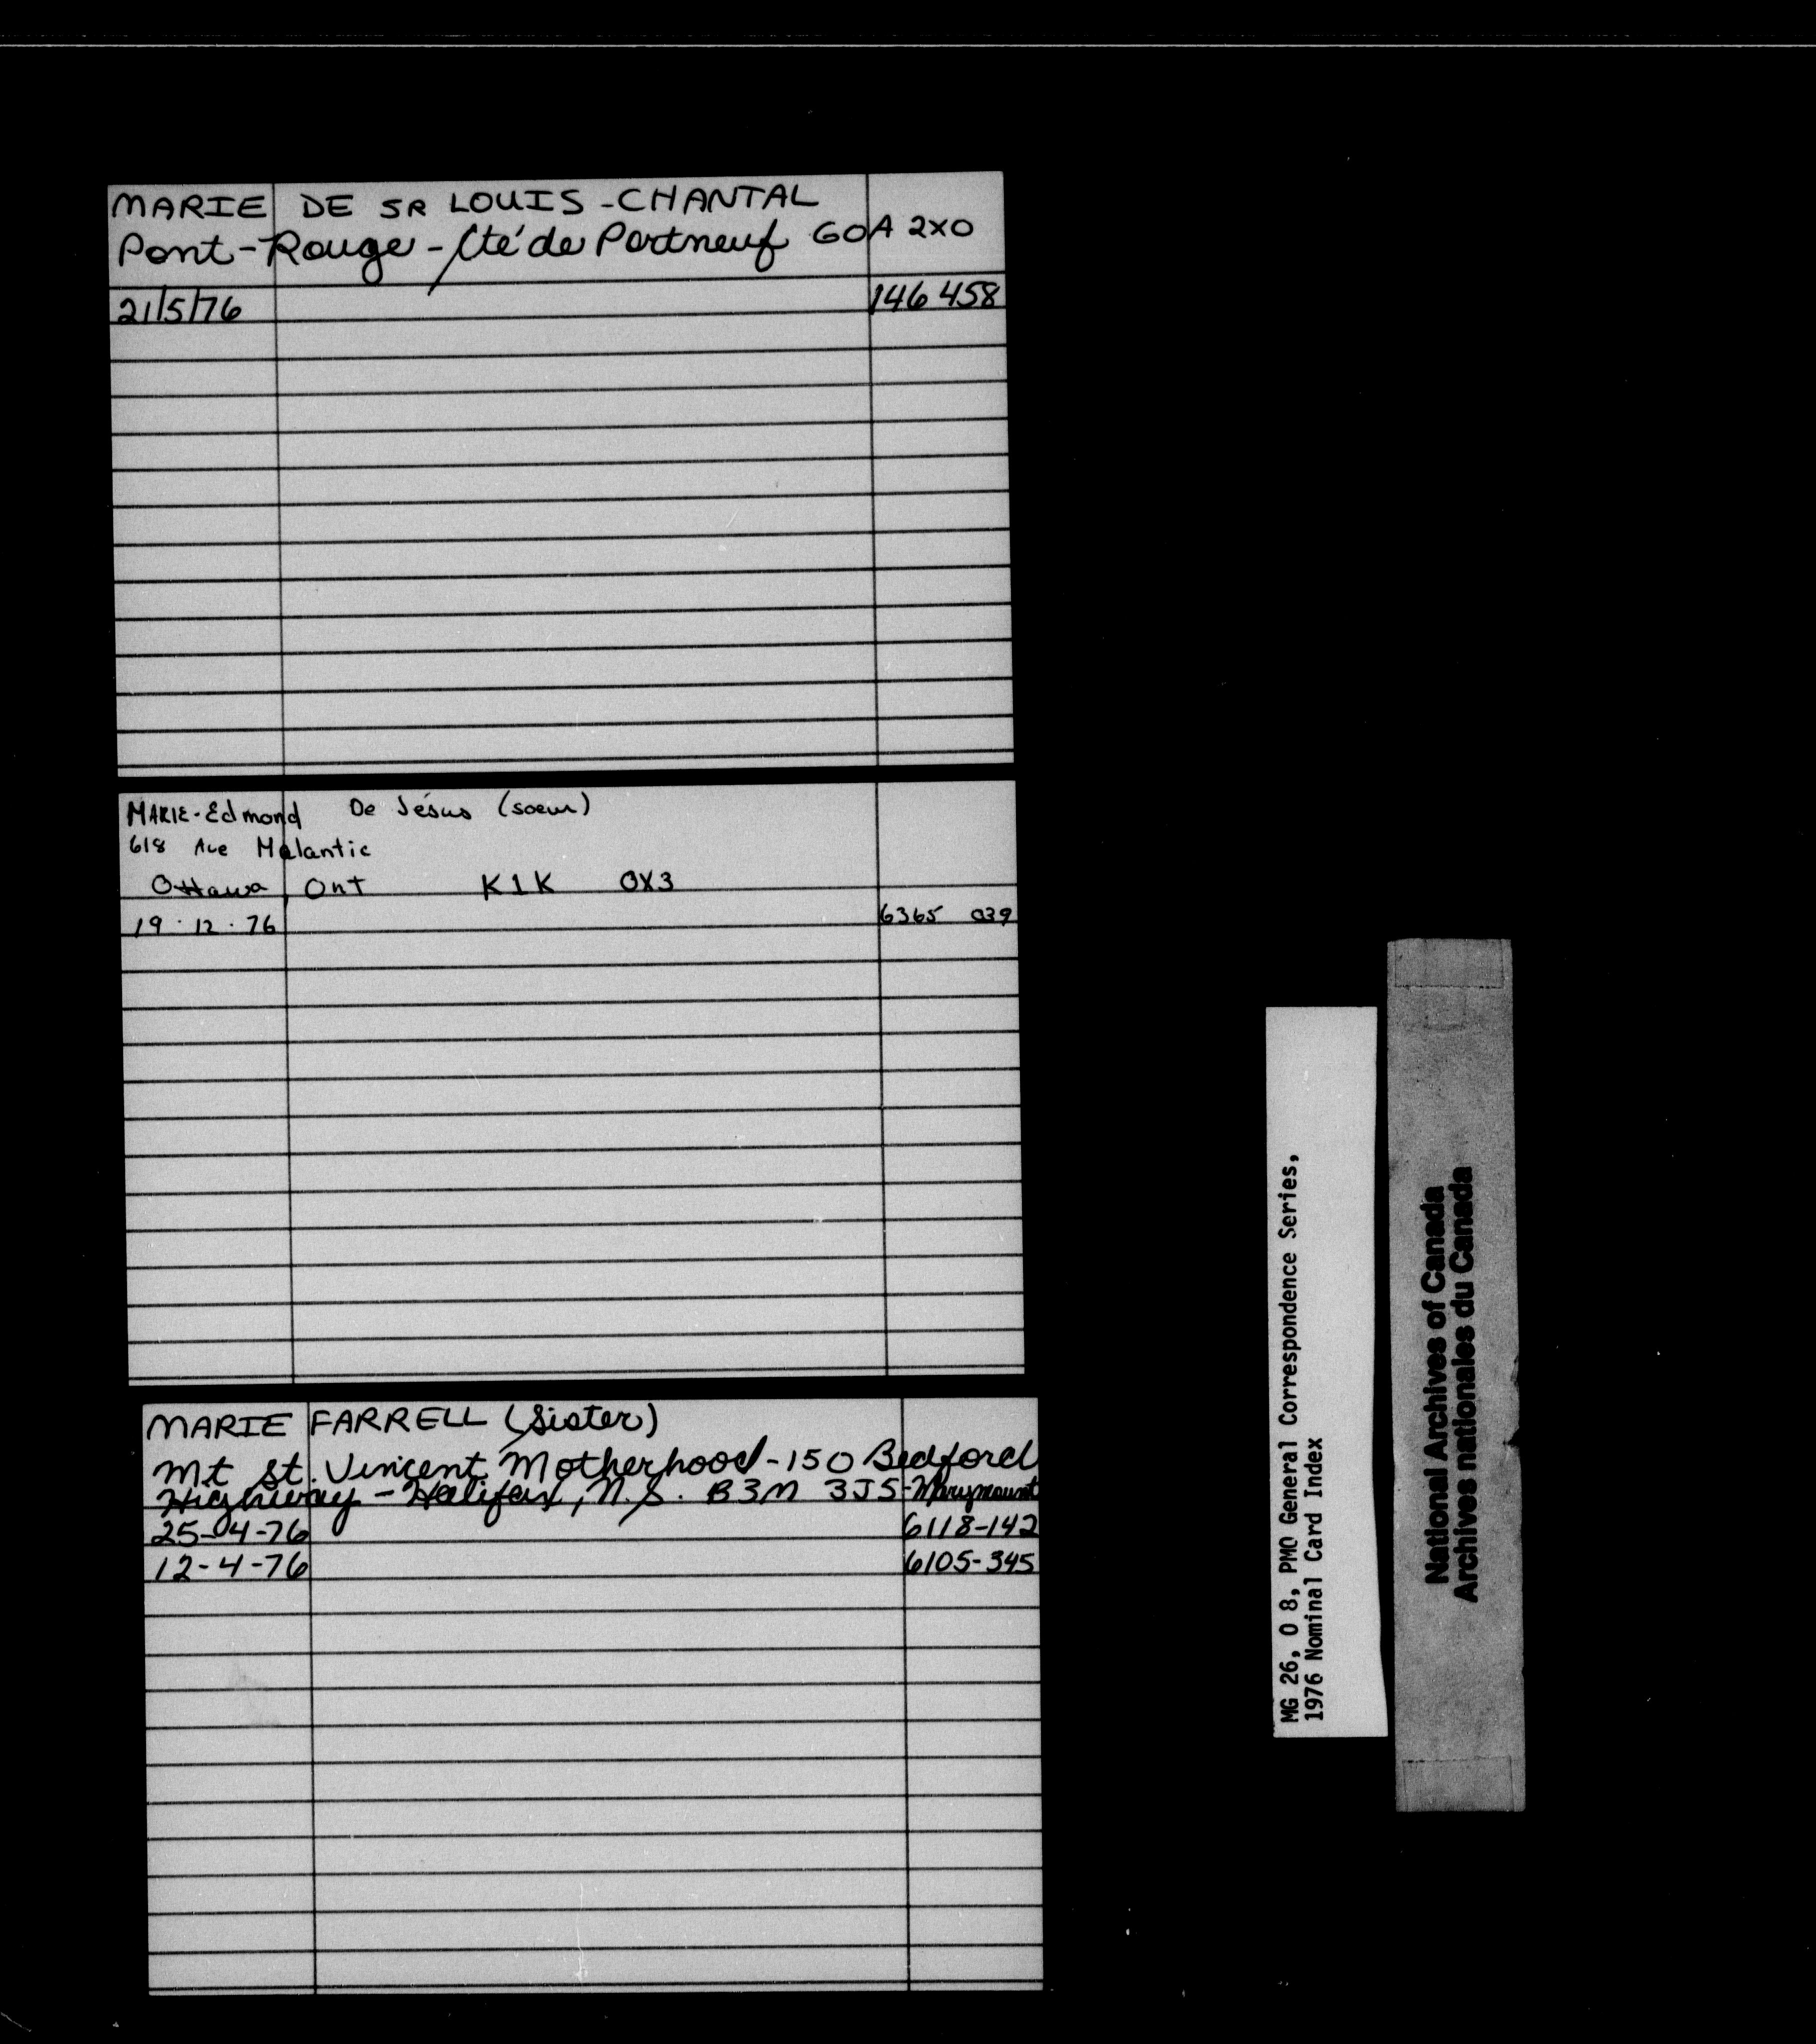 MARIE DE SR LOUIS-CHANTAL
Pont-Rouge-Cté de Portneuf G0A 2X0
21/5/76 146 458
MARIE-Edmond De Jésus (soeur)
618 Ave Malantic
Ottawa, Ont K1K 0X3
19.12.76 6365 039
MARIE FARRELL (Sister)
Mt St. Vincent Motherhood-150 Bedford
Highway-Halifax, N.S. B3M 3J5-Marymount
25-4-76 6118-142
12-4-76 6105-345
MG 26, O 8, PMO General Correspondence Series,
1976 Nominal Card Index
National Archives of Canada
Archives nationales du Canada